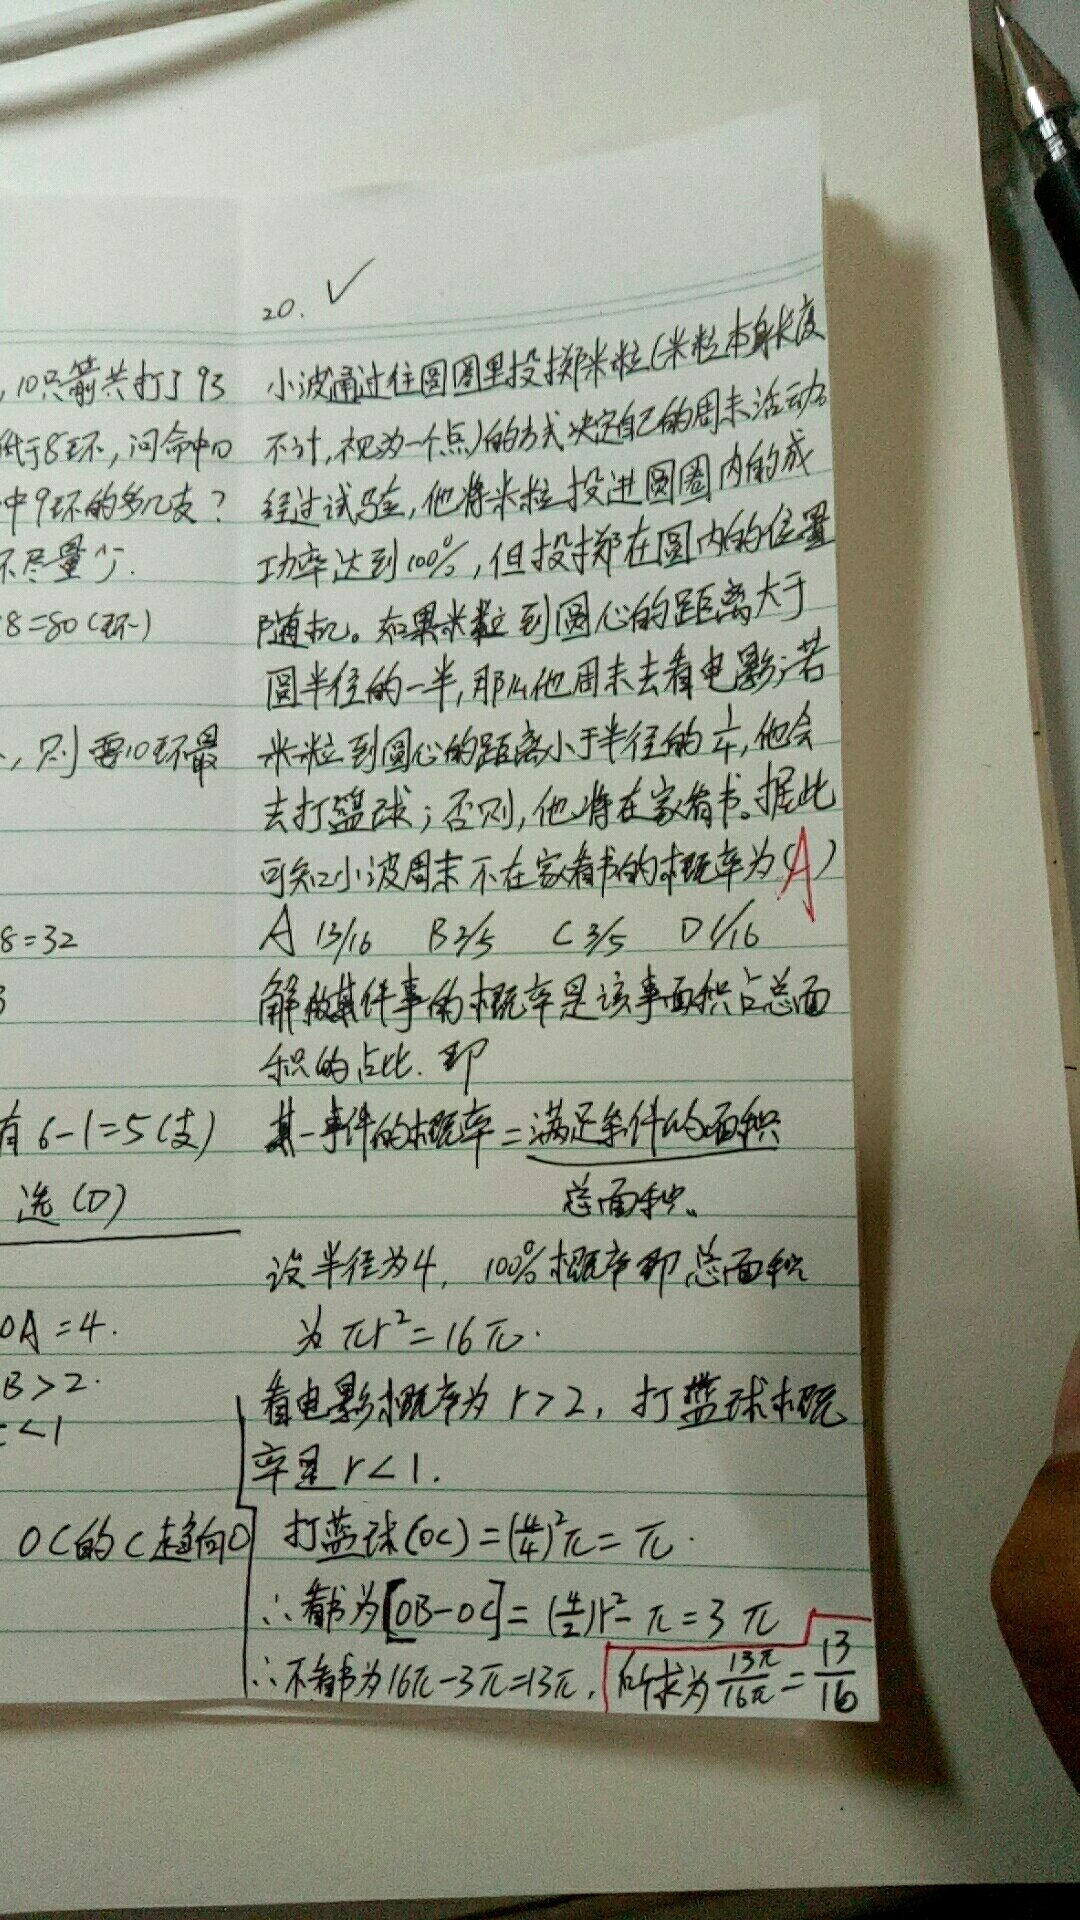 ,10只箭共打了93
低于8环,问命中10
中9环的多几支?
环尽量少.
8=80(环)
,则要10环最
8=32
3
有6-1=5(支)
选(D)
OA=4.
B>2.
<1
OC的C趋向O
20. ✓
小波通过往圆圈里投掷米粒(米粒本身长度
不计,视为一个点)的方式决定自己的周末活动
经过试验,他将米粒投进圆圈内的成
功率达到100%,但投掷在圆内的位置
随机。如果米粒到圆心的距离大于
圆半径的一半,那么他周末去看电影;若
米粒到圆心的距离小于半径的1/4,他会
去打篮球;否则,他将在家看书。据此
可知小波周末不在家看书的概率为(A)
A 13/16 B 2/5 C 3/5 D 1/16
解做某件事的概率是该事面积占总面
积的占比.即
某一事件的概率=满足条件的面积
总面积。
设半径为4, 100%概率即总面积
为πr²=16π.
看电影概率为r>2,打蓝球概
率是r<1.
打蓝球(OC)=(4/4)²π=π.
∴看书为[OB-OC]=(4/2)r²-π=3π
∴不看书为16π-3π=13π, 所求为13π/16π=13/16